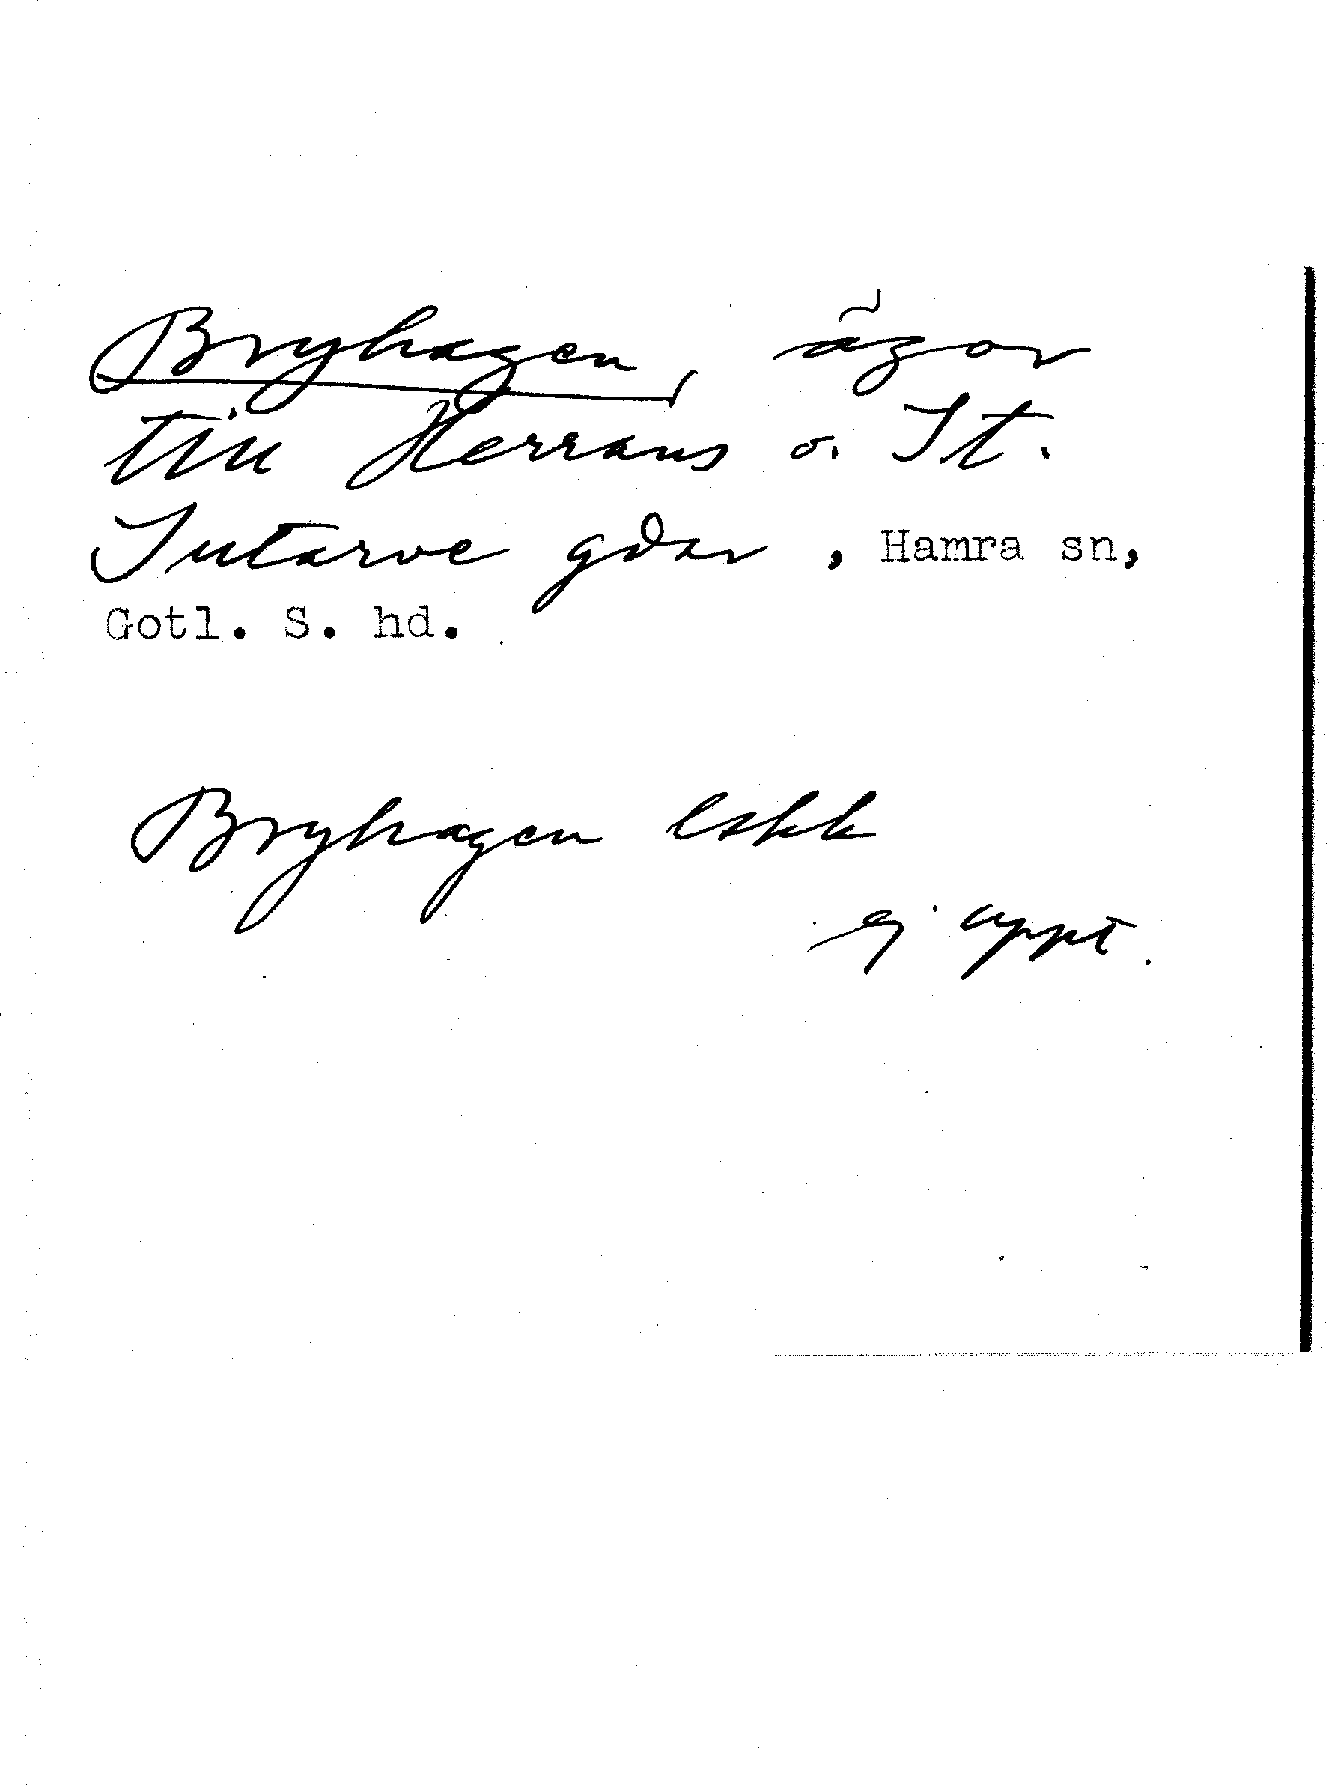 Bryhagen, ägor
till Herrans o. St.
Sutarve gdar, Hamra sn,
Gotl. S. hd.
Bryhagen lskk
ej uppt.